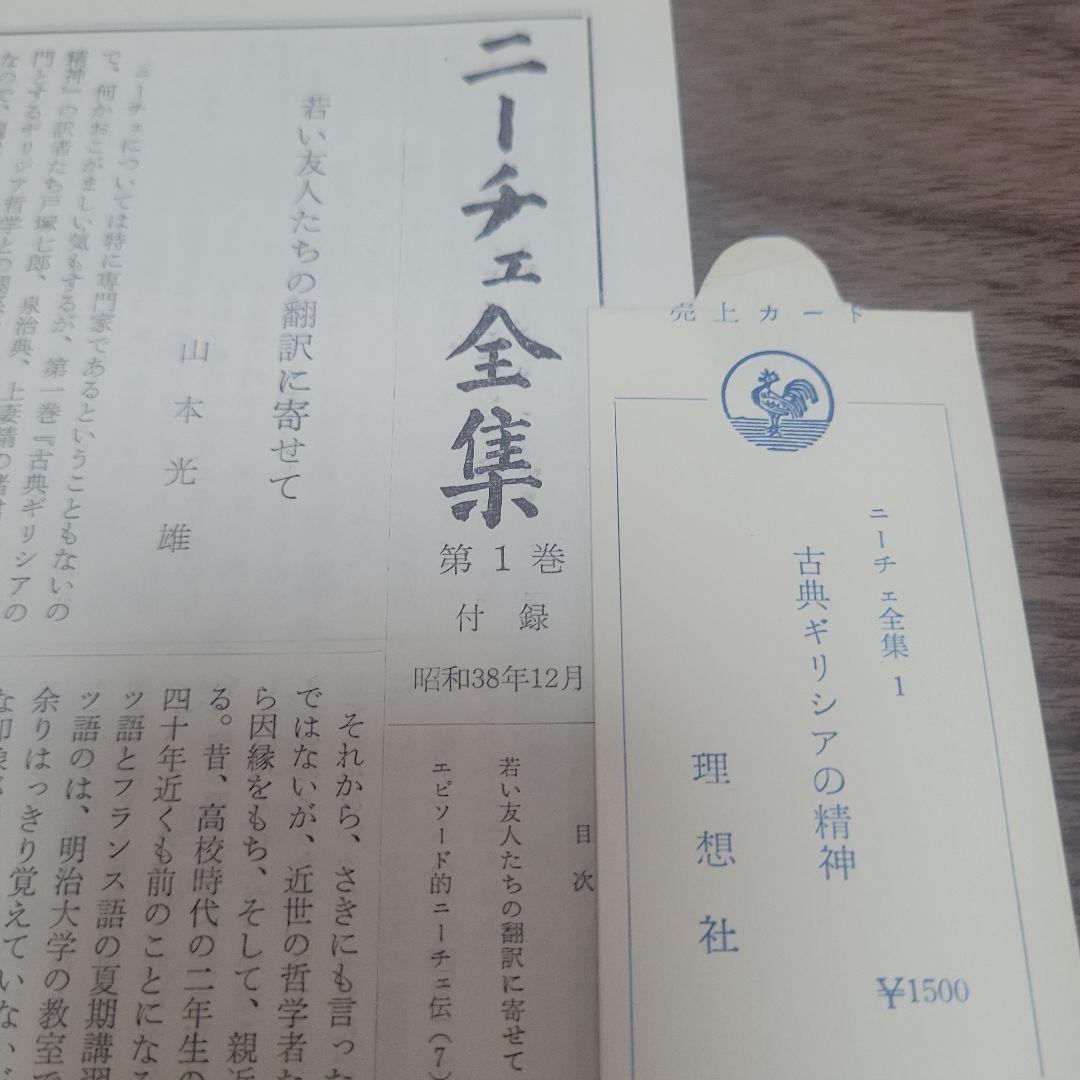 ニーチェ全集
第1巻
付録
昭和38年12月
目次
若い友人たちの翻訳に寄せて
エピソード的ニーチェ伝(7)
若い友人たちの翻訳に寄せて
山本光雄
ニーチェについては特に専門家であるということもないの
で、何かおこがましい気もするが、第一巻『古典ギリシアの
精神』の訳者たち戸塚七郎、泉治典、上妻精の
門とするギリシア哲学との関係
なので、
それから、さきにも言った
ではないが、近世の哲学者た
ら因縁をもち、そして、親近
る。昔、高校時代の二年生の
四十年近くも前のことになる
ッ語とフランス語の夏期講習
ッ語のは、明治大学の教室で
余りはっきり覚えていない
な印象
売上カード
ニーチェ全集 1
古典ギリシアの精神
理想社
¥1500